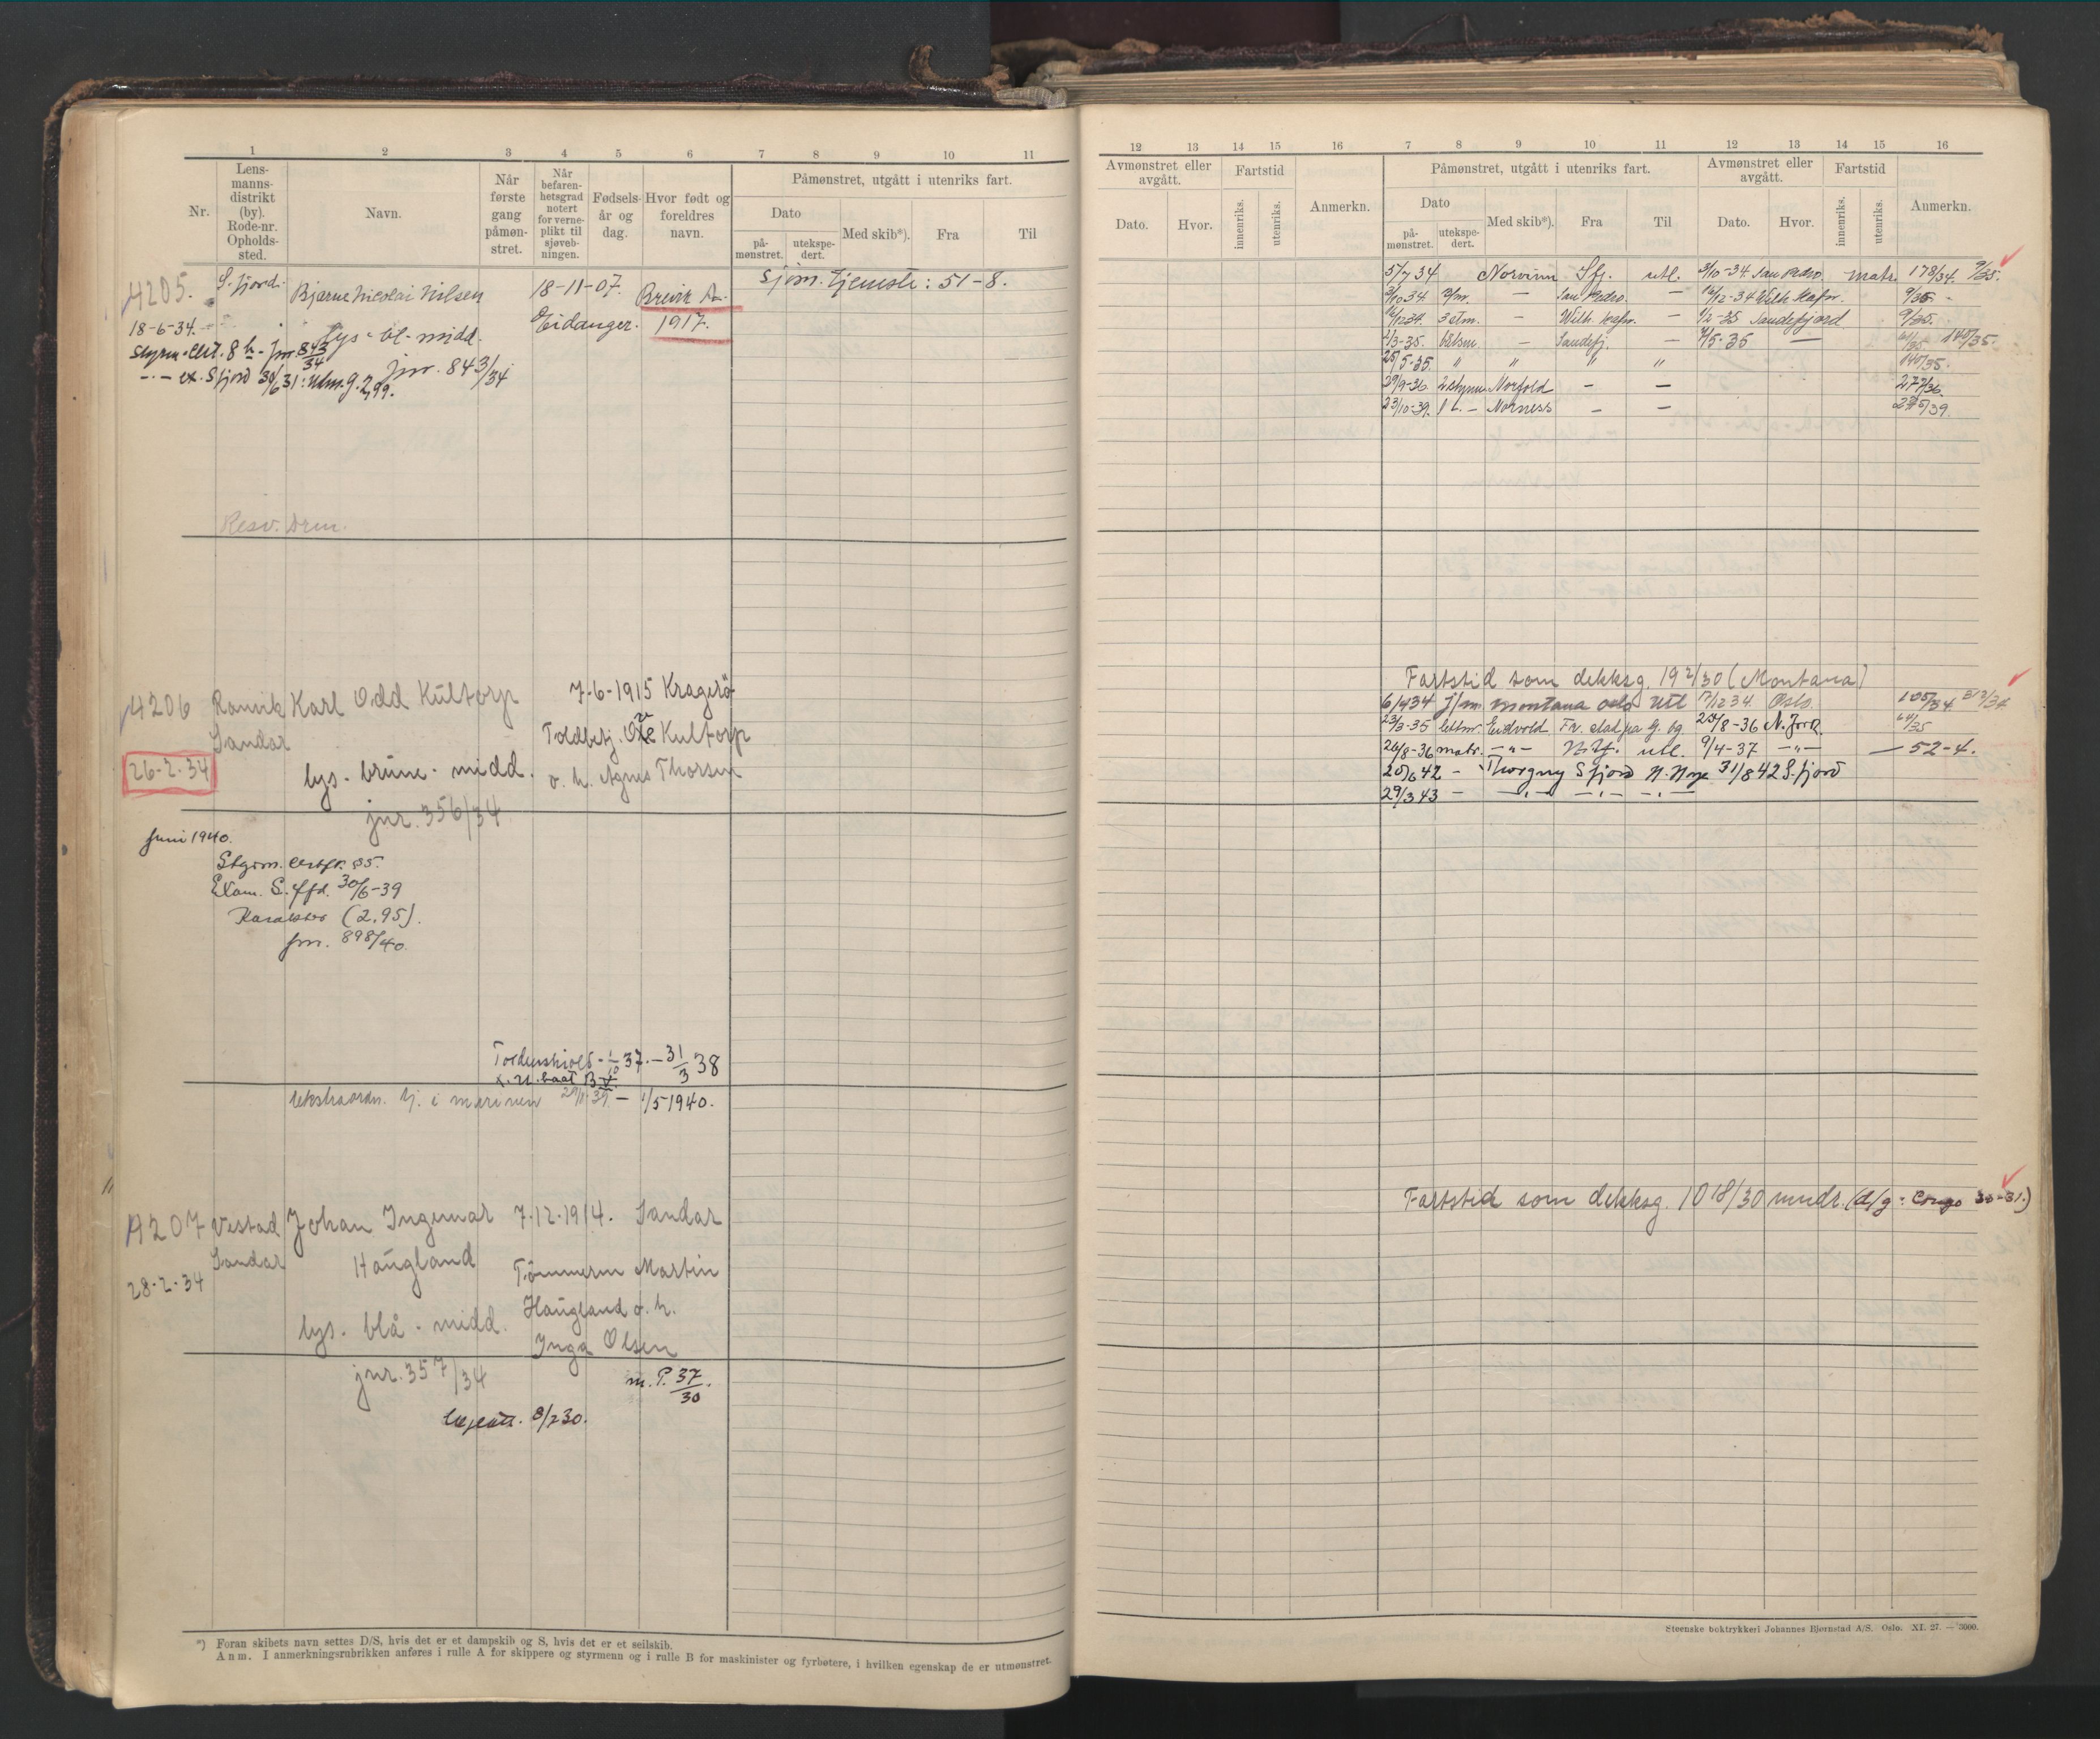 1 2 3 4 5 6 7 8 9 10 11
Nr.
Lens-
manns-
distrikt
(by).
Rode-nr.
Opholds-
sted.
Navn.
Når
første
gang
påmøn-
stret.
Når
befaren-
hetsgrad
notert
for verne-
plikt til
sjøveb-
ningen.
Fødsels-
år og
dag.
Hvor født og
foreldres
navn.
Påmønstret, utgått i utenriks fart.
Dato
på-
mønstret.
utekspe-
dert.
Med skib*).
Fra
Til
4205. S. fjord. Bjarne Nicolai Nilsen 18-11-07. Brevik A.
Sjøm. tjeneste: 51-8.
18-6-34. Eidanger. 1917.
lys - bl - midd.
Styrm. cert. 8 h - Jnr. 843/34
jnr. 843/34
ex. Sfjord 30/6 31:
Resv. Arm.
4206 Ranvik Karl Odd Kultorp 7-6-1915 Kragerö
Sandar Toldbetj. Kultorp
26-2-34 lys. brune. midd. o. h. Agnes Thorsen
jnr. 356/34
Juni 1940.
Styrm. certf. 85.
Exam. S. ffd. 30/6-39
Karakter (2,95).
Jnr. 898/40.
Tordenskiold - 1/10 37. - 31/3 38
Ekstraordn. tj. i marinen 29/11-39. - 1/5 1940.
4207 Vestad Johan Ingemar 7-12-1914. Sandar
Sandar Haugland Tömmerm Martin
28-2-34 Haugland o. h.
lys. blå. midd. Inga Olsen
jnr. 357/34 m. P. 37/30.
8/2 30.
*) Foran skibets navn settes D/S, hvis det er et dampskib og S, hvis det er et seilskib.
Anm. I anmerkningsrubrikken anføres i rulle A for skippere og styrmenn og i rulle B for maskinister og fyrbøtere, i hvilken egenskap de er utmønstret.
12 13 14 15 16 7 8 9 10 11 12 13 14 15 16
Avmønstret eller
avgått.
Dato.
Hvor.
Fartstid
innenriks.
utenriks.
Anmerkn.
Påmønstret, utgått i utenriks fart.
Dato
på-
mønstret.
utekspe-
dert.
Med skib*).
Fra
Til
Avmønstret eller
avgått.
Dato.
Hvor.
Fartstid
innenriks.
utenriks.
Anmerkn.
5/7 34 Norvinn Sfj. utl. 3/10-34. San Pedro matr. 178/34. 9/35.
3/10 34 — San Pedro. — 16/12-34 Wilh. Hafn. 9/35 -
16/12 34. 3 stm. — Wilh. Hafn. — 1/2-35 Sandefjord 9/35.
1/3-35. — Sandefj. — 140/35.
25/5-35. " " " " 140/35.
29/9-36. 2 styrm. Norfold — — 277/36.
23/10-39. 1 st. — Norness — —
Fartstid som dekksg. 19 2/30 (Montana)
6/4 34 j/m Montana Oslo Utl 17/12 34. Oslo. 105/34 312/34
23/3-35 lettm. Eidsvold Fr. stad pa G. bg 25/8-36 N. Jork 64/35
26/8-36 matr. -"- utl. 9/4-37 -"- — 52-4.
20/6 42 - Thorgny Sfjord N. Nrge 31/8 42 S. fjord
29/3 43 - -"- -"- -"-
Fartstid som dekksg. 10 18/30 mndr. (d/g: Congo 30-31.)
Steenske boktrykkeri Johannes Bjørnstad A/S. Oslo. XI. 27. — 3000.